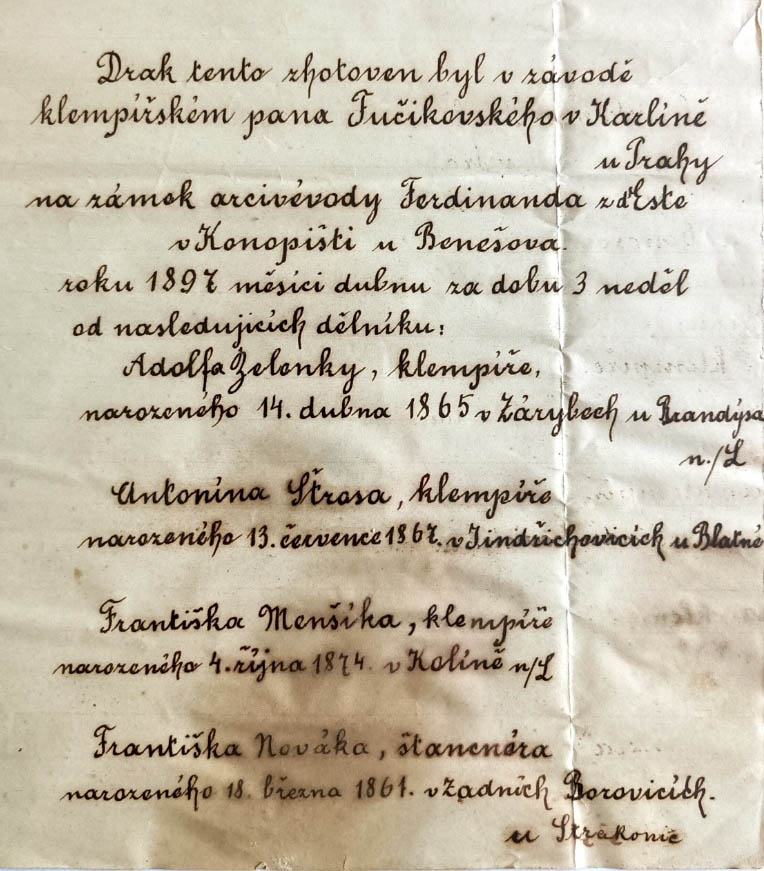 Drak tento zhotoven byl v závodě
klempířském pana Fučikovského v Karlíně
u Prahy
na zámek arcivévody Ferdinanda z d'Este
v Konopišti u Benešova.
roku 1897 měsíci dubnu za dobu 3 neděl
od nasledujicích dělníku:
Adolfa Zelenky, klempíře,
narozeného 14. dubna 1865 v Zárybech u Brandýsa
n./L
Antonína Štrosa, klempíře
narozeného 13. července 1867. v Jindřichovicích u Blatné
Františka Menšíka, klempíře
narozeného 4. října 1874. v Kolíně n/L
Františka Nováka, štancnéra
narozeného 18. března 1861. v Zadních Borovicích.
u Strakonic